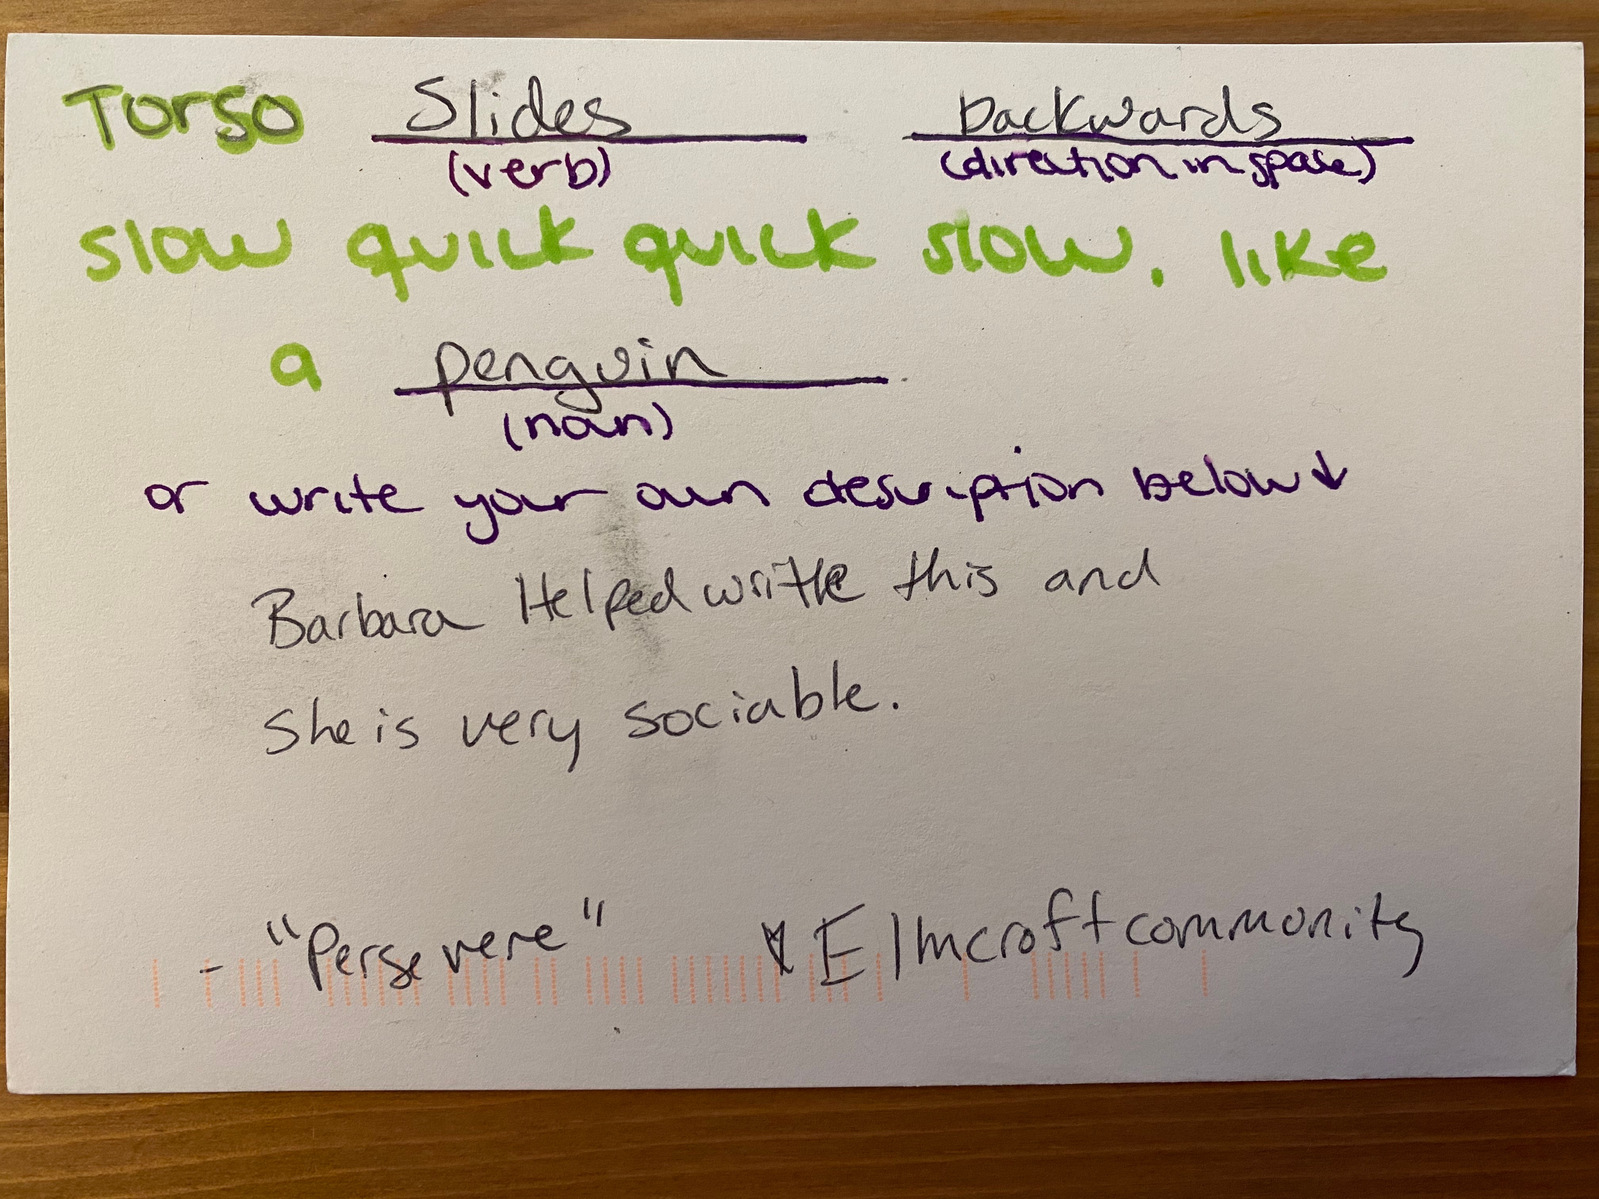 Torso Slides backwards
(verb) (direction in space)
slow quick quick slow. like
a penguin
(noun)
or write your own description below ↓
Barbara Helped writte this and
She is very sociable.
- "Persevere" Elmcroft community